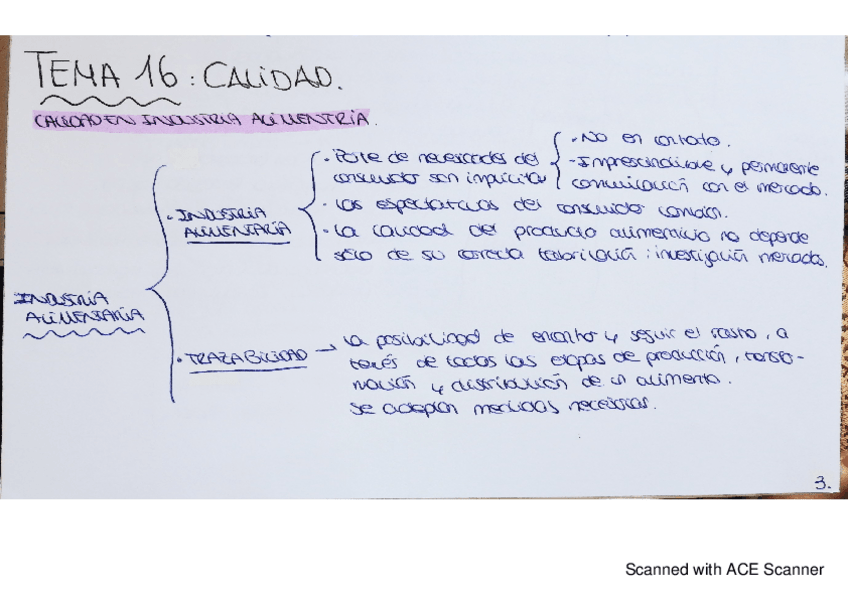 TEMA 16: CALIDAD.
CALIDAD EN INDUSTRIA ALIMENTRIA.
INDUSTRIA
ALIMENTARIA
· INDUSTRIA
ALIMENTARIA
· Parte de necesidades del
consumidor son implícitas
- No en contrato.
- Imprescindible y permanente
comunicación con el mercado.
· Las espectativas del consumidor cambian.
· La calidad del producto alimenticio no depende
sólo de su correcta fabricación: investigación mercado.
· TRAZABILIDAD → La posibilidad de encontrar y seguir el rastro, a
través de todas las etapas de producción, transfor-
mación y distribución de un alimento.
Se adoptan medidas necesarias.
3.
Scanned with ACE Scanner